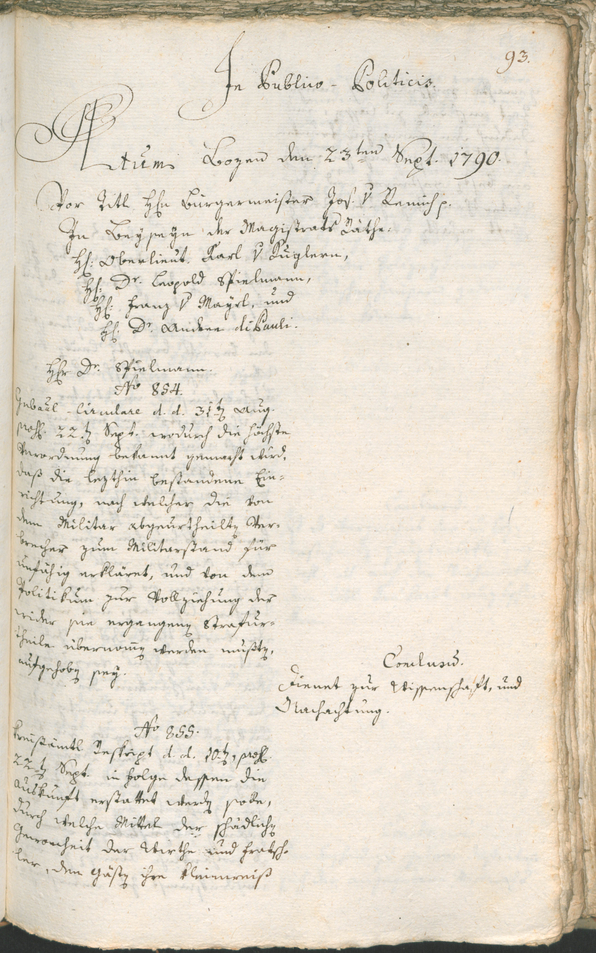 93.
In Publico-Politicis.
Actum Bozen den 23ten Sept. 1790.
Vor Titl Hℓn Bürgermeister Jos. v
In Beyseyn der Magistrats Räthe
H: Oberlieut. Karl v
H: Dr. Leopold Spielmann,
H: Franz v Mayrl, und
H: Dr. Andree diPauli.
Hℓr Dr. Spielmann.
No 854.
Gubnal-Circulare d. d. 31ten Aug.
22ten Sept. wodurch die höchste
Verordnung bekannt gemacht wird,
daß die lezthin bestandene Ein-
richtung, nach welcher die von
dem Militar abgeurtheilten Ver-
brecher zum Militarstand für
unfähig erkläret, und von dem
Politikum zur Vollziehung der
wider sie ergangenen Strafur-
theile übernommen werden mußten,
aufgehoben sey.
Conclusum.
Dienet zur Wissenschaft, und
Nachachtung.
No 855.
Kreisämtl Reskript d. d. 10ten,
22ten Sept. in Folge dessen die
Auskunft erstattet werden solle,
durch welche Mittel der schädlichen
Gewohnheit der Wirthe und Fratsch-
ler, den Gästen ihre kleinweiß